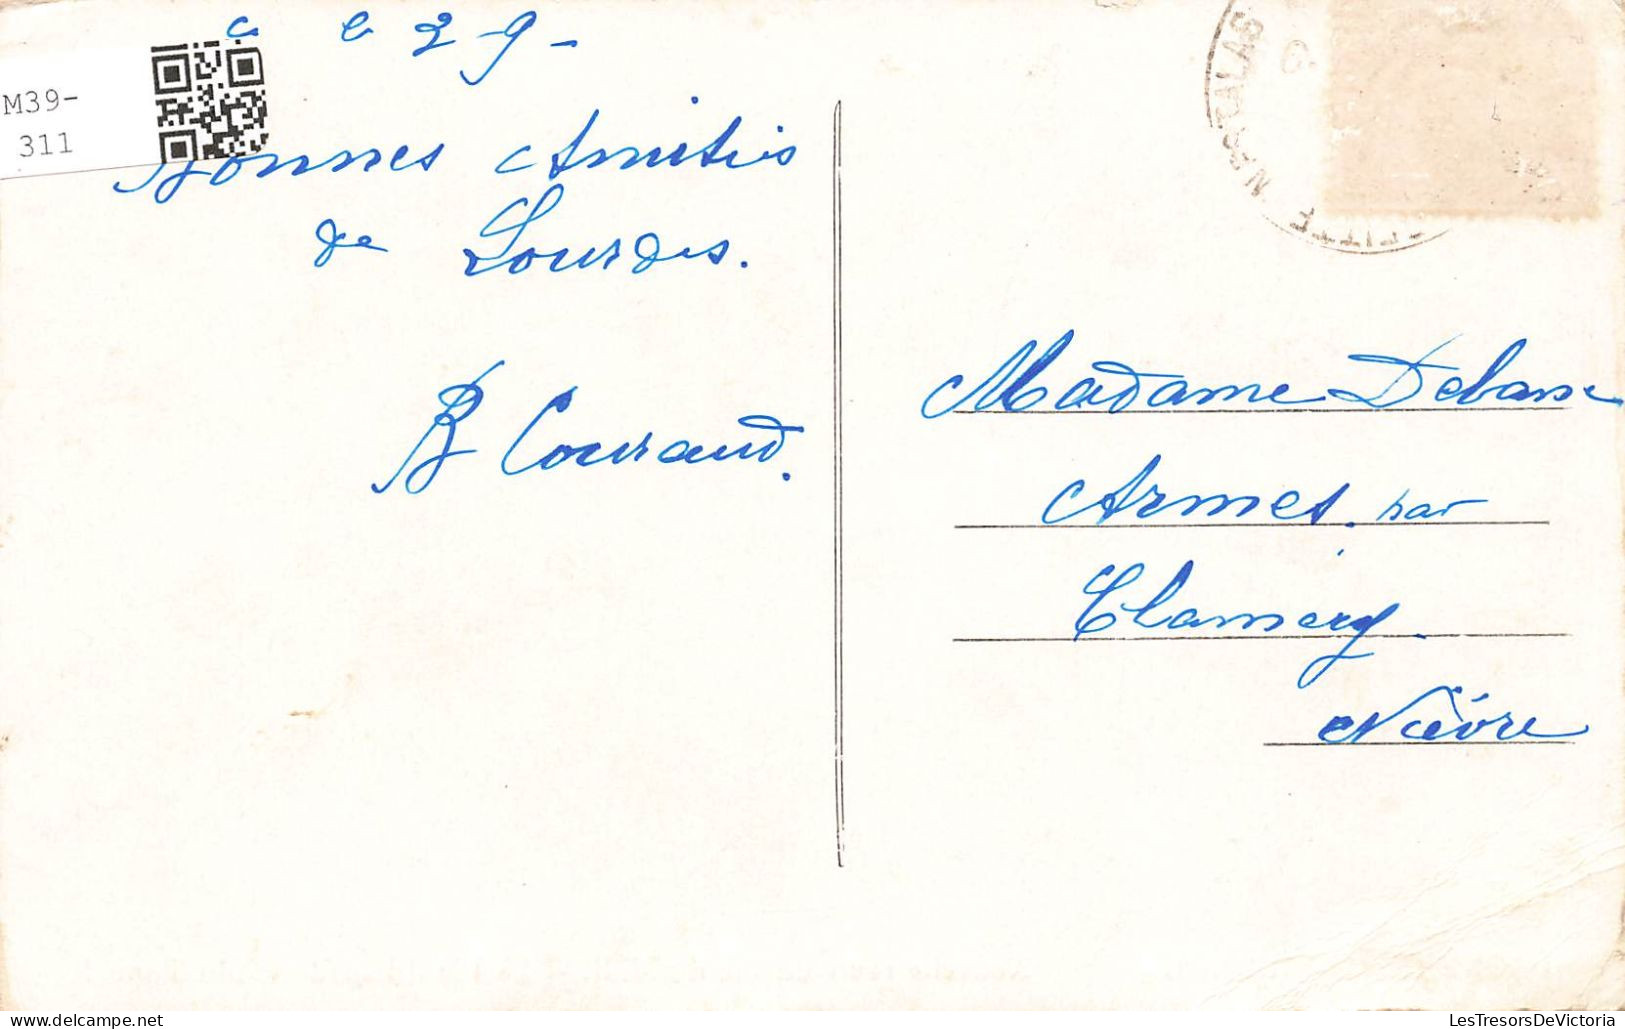 c e 29-
M39-
311
Bonnes Amitiés
de Lourdes.
B Couraud.
Madame Debarre
Armes. par
Clamecy.
Nièvre
LesTresorsDeVictoria